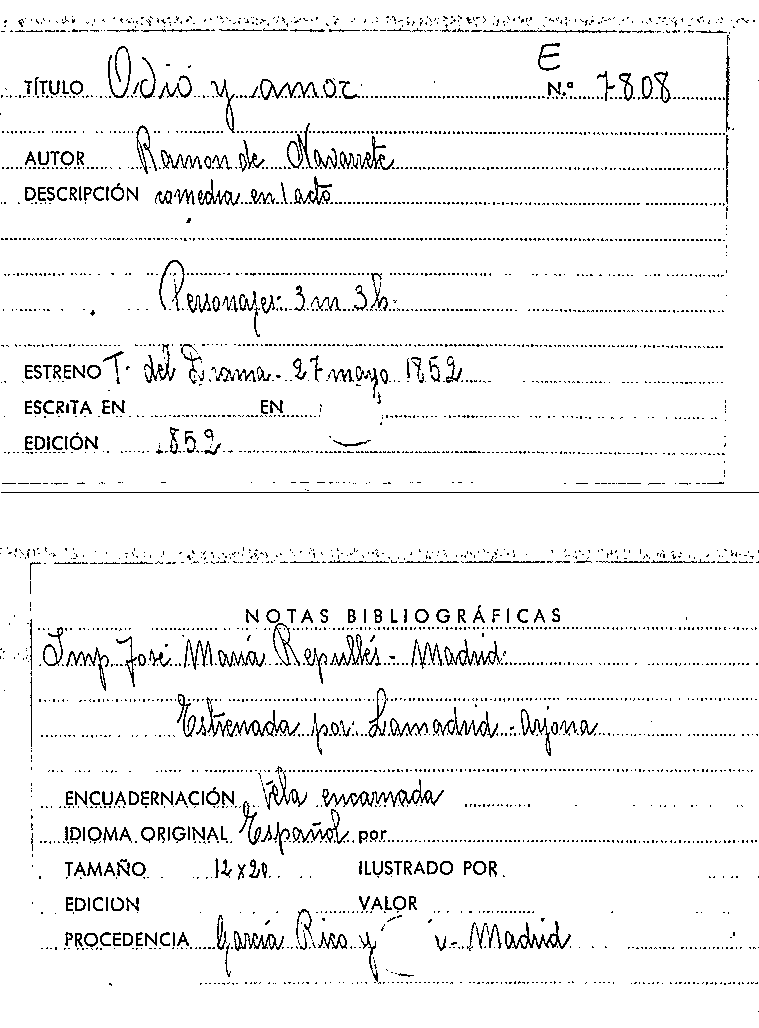 E
TÍTULO Odio y amor N.º 7808
AUTOR Ramon de Navarrete
DESCRIPCIÓN comedia en 1 acto
Personajes: 3 m 3 h.
ESTRENO T. del Drama - 27 mayo 1852
ESCRITA EN EN
EDICIÓN 1852
NOTAS BIBLIOGRÁFICAS
Imp José María Repullés - Madrid
Estrenada por: Lamadrid - Arjona
ENCUADERNACIÓN Tela encarnada
IDIOMA ORIGINAL Español por
TAMAÑO 12 x 20 ILUSTRADO POR
EDICION VALOR
PROCEDENCIA García Rico y - Madrid